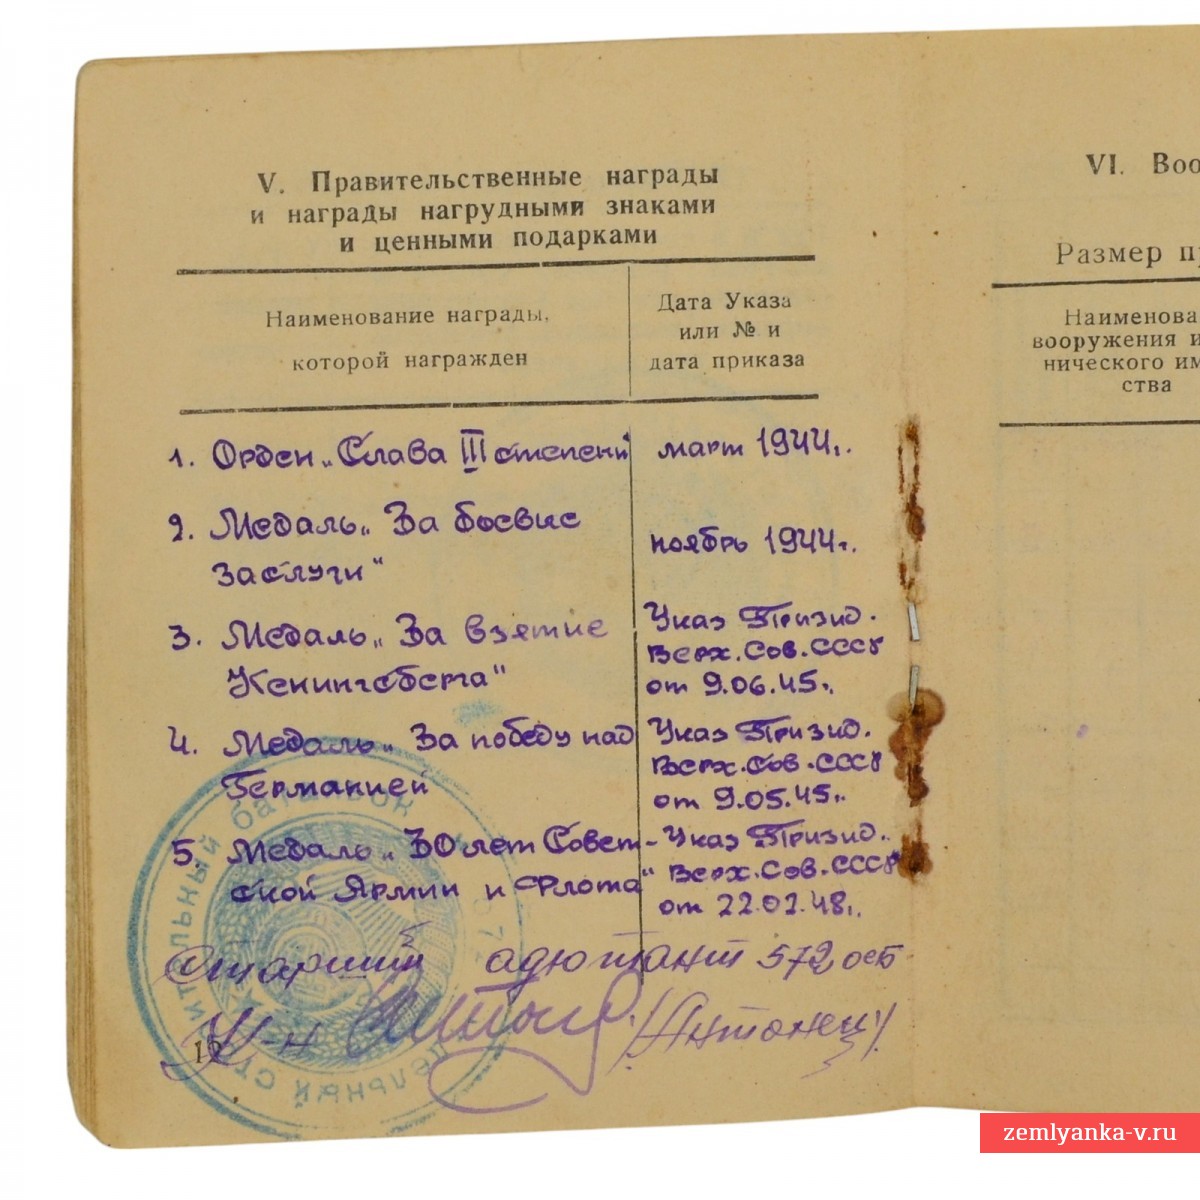 V. Правительственные награды
и награды нагрудными знаками
и ценными подарками
Наименование награды,
которой награжден
Дата Указа
или № и
дата приказа
1. Орден „Слава III степени
март 1944г.
2. Медаль „За боевые
заслуги"
ноябрь 1944г.
3. Медаль „За взятие
Кенингсберга"
Указ Призид.
Верх.Сов.СССР
от 9.06.45г.
4. Медаль „За победу над
Германией
Указ Призид.
Верх.Сов.СССР
от 9.05.45г.
5. Медаль „30 лет Совет-
ской Армии и Флота"
Указ Призид.
Верх.Сов.СССР
от 22.02.48г.
Старший адютант 572 осб
/Антонец/
16
VI. Воо
Размер п
Наименова
вооружения и
нического им
ства
тельный батальон
дельный ст
zemlyanka-v.ru